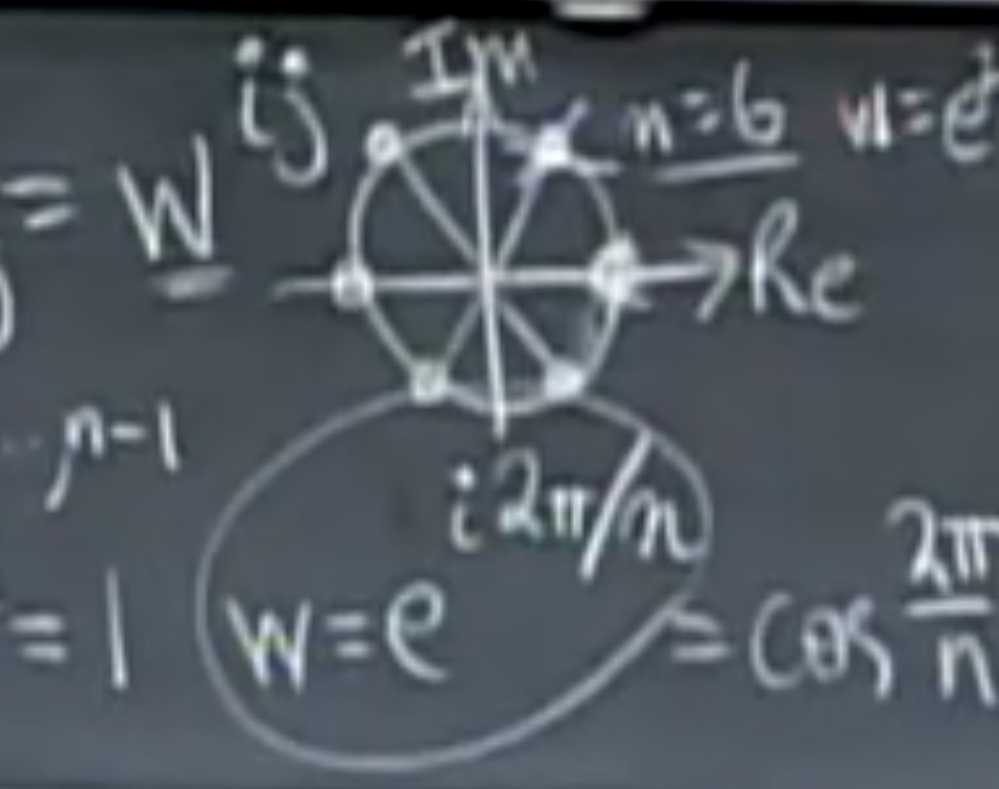 = W^{ij}
Im
n=6 w=e
Re
,n-1
=1
w=e^{i2π/n} = cos 2π/n